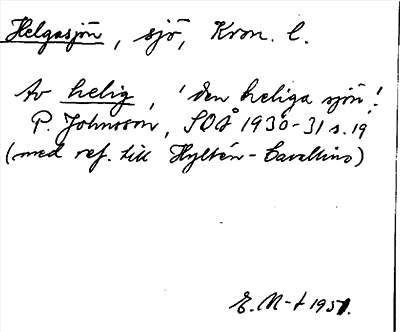 Helgasjön, sjö, Kron. l.
Av helig, 'den heliga sjön'.
P. Johnsson, SOÅ 1930-31 s. 19
(med ref. till Hyltén-Cavallius)
E. M-t 1951.